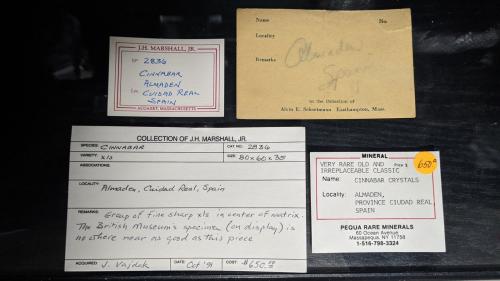 J.H. MARSHALL, JR.
Nº 2836
CINNABAR
ALMADEN
Loc CUIDAD REAL
SPAIN
AUGUSTA, MASSACHUSETTS
Name No.
Locality
Remarks Almaden
Spain
In the Collection of
Alvin E. Schortmann Easthampton, Mass.
COLLECTION OF J.H. MARSHALL, JR.
SPECIES: CINNABAR CAT NO. 2836
VARIETY: xls SIZE: 80x60x35
ASSOCIATIONS:
LOCALITY: Almaden, Cuidad Real, Spain
REMARKS: Group of fine sharp xls in center of matrix.
The British Museum's specimen (on display) is
no where near as good as this piece
ACQUIRED: J. Vajdak DATE: Oct '91 COST: $650.00
MINERAL
VERY RARE OLD AND
IRREPLACEABLE CLASSIC
Price $ 650
Name: CINNABAR CRYSTALS
Locality: ALMADEN,
PROVINCE CIUDAD REAL
SPAIN
PEQUA RARE MINERALS
60 Ocean Avenue
Massapequa, NY 11758
1-516-798-3324